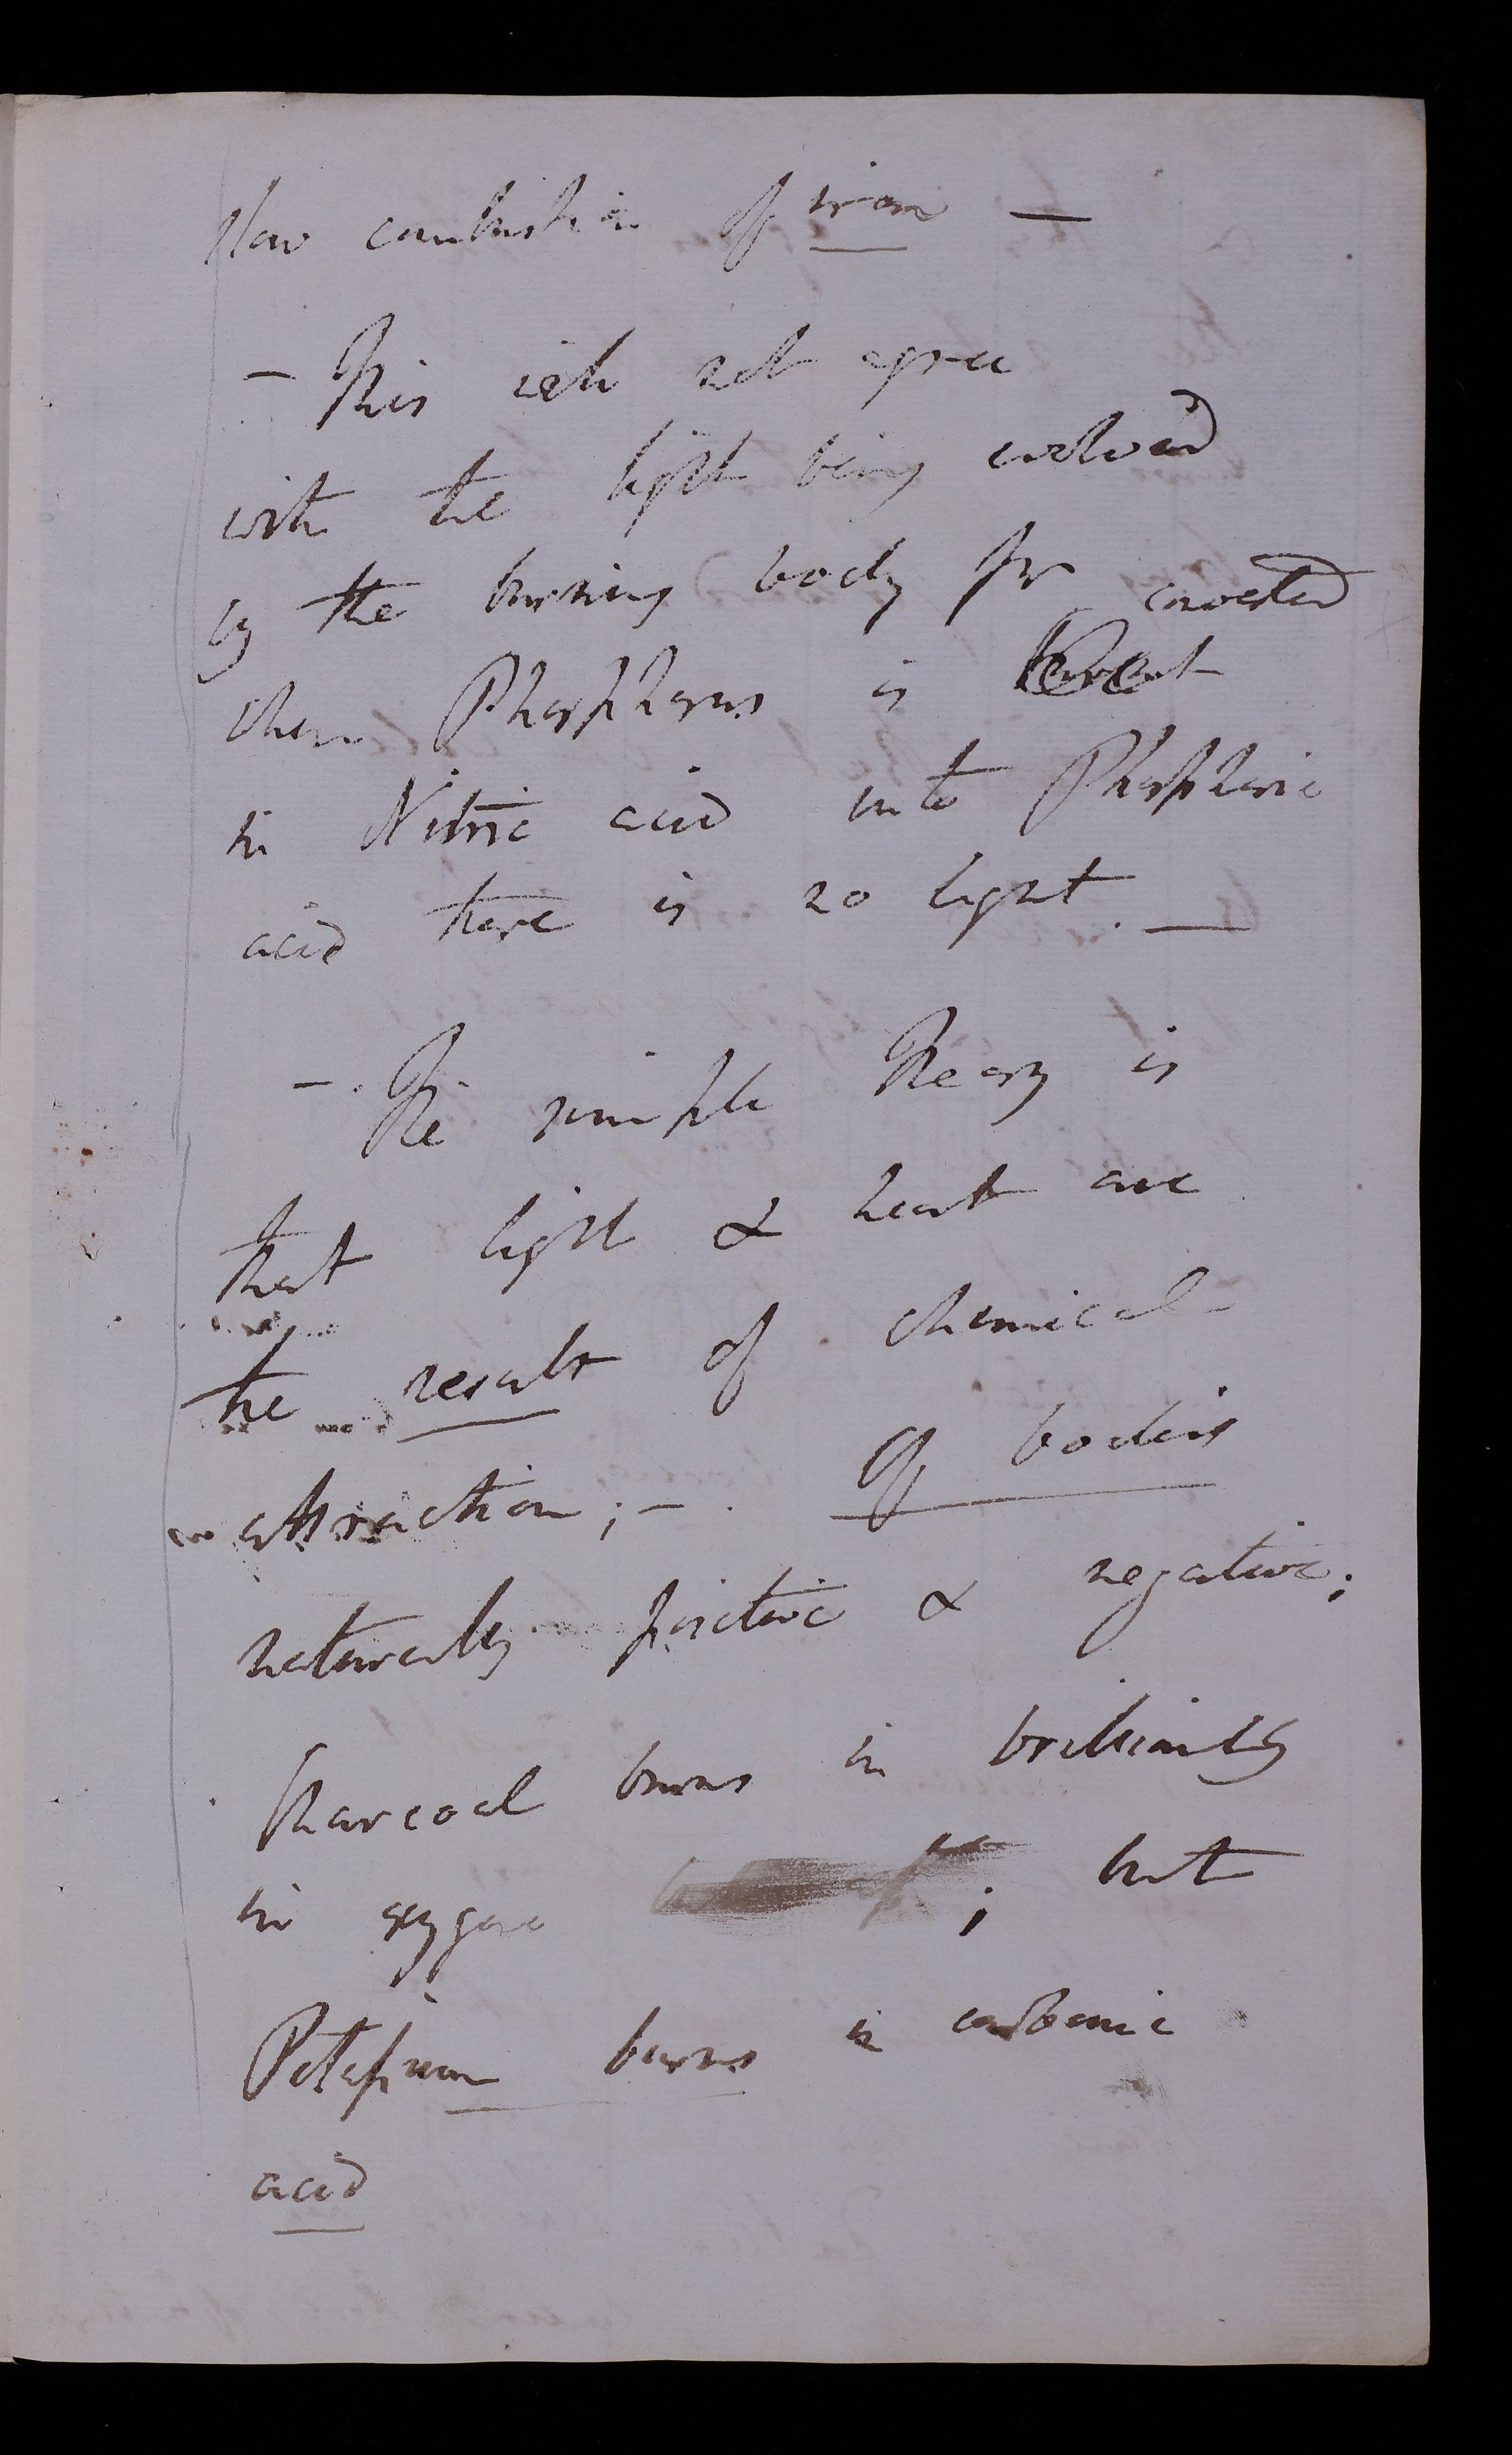 slow combustion of iron —
— This will not agree
with the light being evolved
by the burning body for
converted
when Phosphorus is
in Nitric acid into Phosphoric
acid there is no light. —
— . The simple Theory is
that light & heat are
the result of chemical
attraction; — . Of bodies
naturally positive & negative;
Charcoal burns in brilliantly
in oxygene ; but
Potassium burns in carbonic
acid